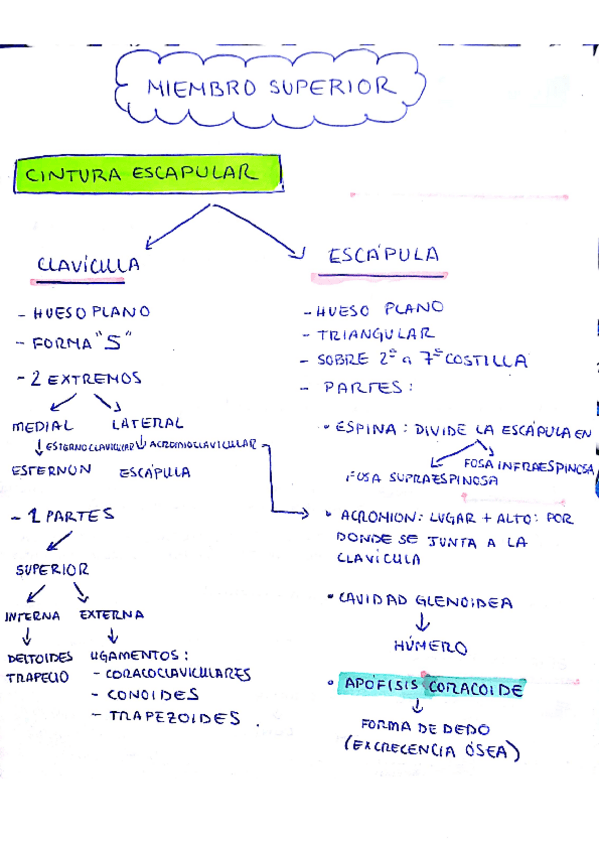 MIEMBRO SUPERIOR
CINTURA ESCAPULAR
CLAVÍCULLA
- HUESO PLANO
- FORMA "S"
- 2 EXTREMOS
MEDIAL LATERAL
ESTERNOCLAVICULAR ACROMIOCLAVICULAR
ESTERNON ESCÁPULA
- 2 PARTES
SUPERIOR
INTERNA EXTERNA
DELTOIDES LIGAMENTOS:
TRAPECIO - CORACOCLAVICULARES
- CONOIDES
- TRAPEZOIDES.
ESCÁPULA
- HUESO PLANO
- TRIANGULAR
- SOBRE 2ª a 7ª COSTILLA
- PARTES:
• ESPINA: DIVIDE LA ESCÁPULA EN
FOSA INFRAESPINOSA
FOSA SUPRAESPINOSA
• ACROMION: LUGAR + ALTO: POR
DONDE SE JUNTA A LA
CLAVÍCULA
• CAVIDAD GLENOIDEA
HÚMERO
• APÓFISIS CORACOIDE
FORMA DE DEDO
(EXCRECENCIA ÓSEA)